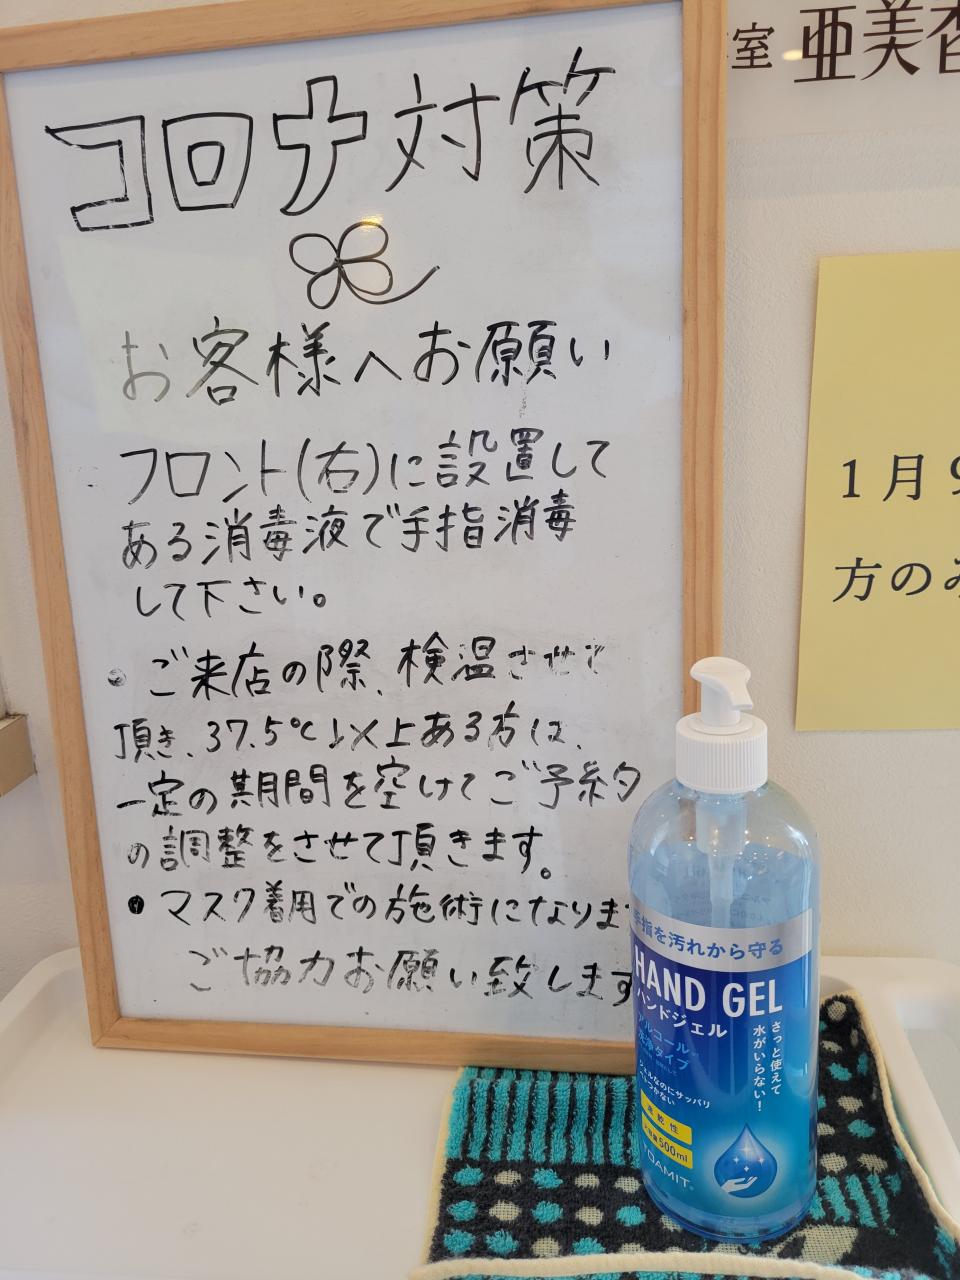 室 亜美香
コロナ対策
お客様へお願い
フロント(右)に設置して
ある消毒液で手指消毒
して下さい。
• ご来店の際、検温させて
頂き、37.5℃以上ある方は、
一定の期間を空けてご予約
の調整をさせて頂きます。
• マスク着用での施術になりま
ご協力お願い致します
1月9
方のみ
手指を汚れから守る
HAND GEL
ハンドジェル
アルコール
洗浄タイプ
さっと使えて
水がいらない!
ジェルなのにサッパリ
べたつかない
速乾性
大容量500ml
TOAMIT